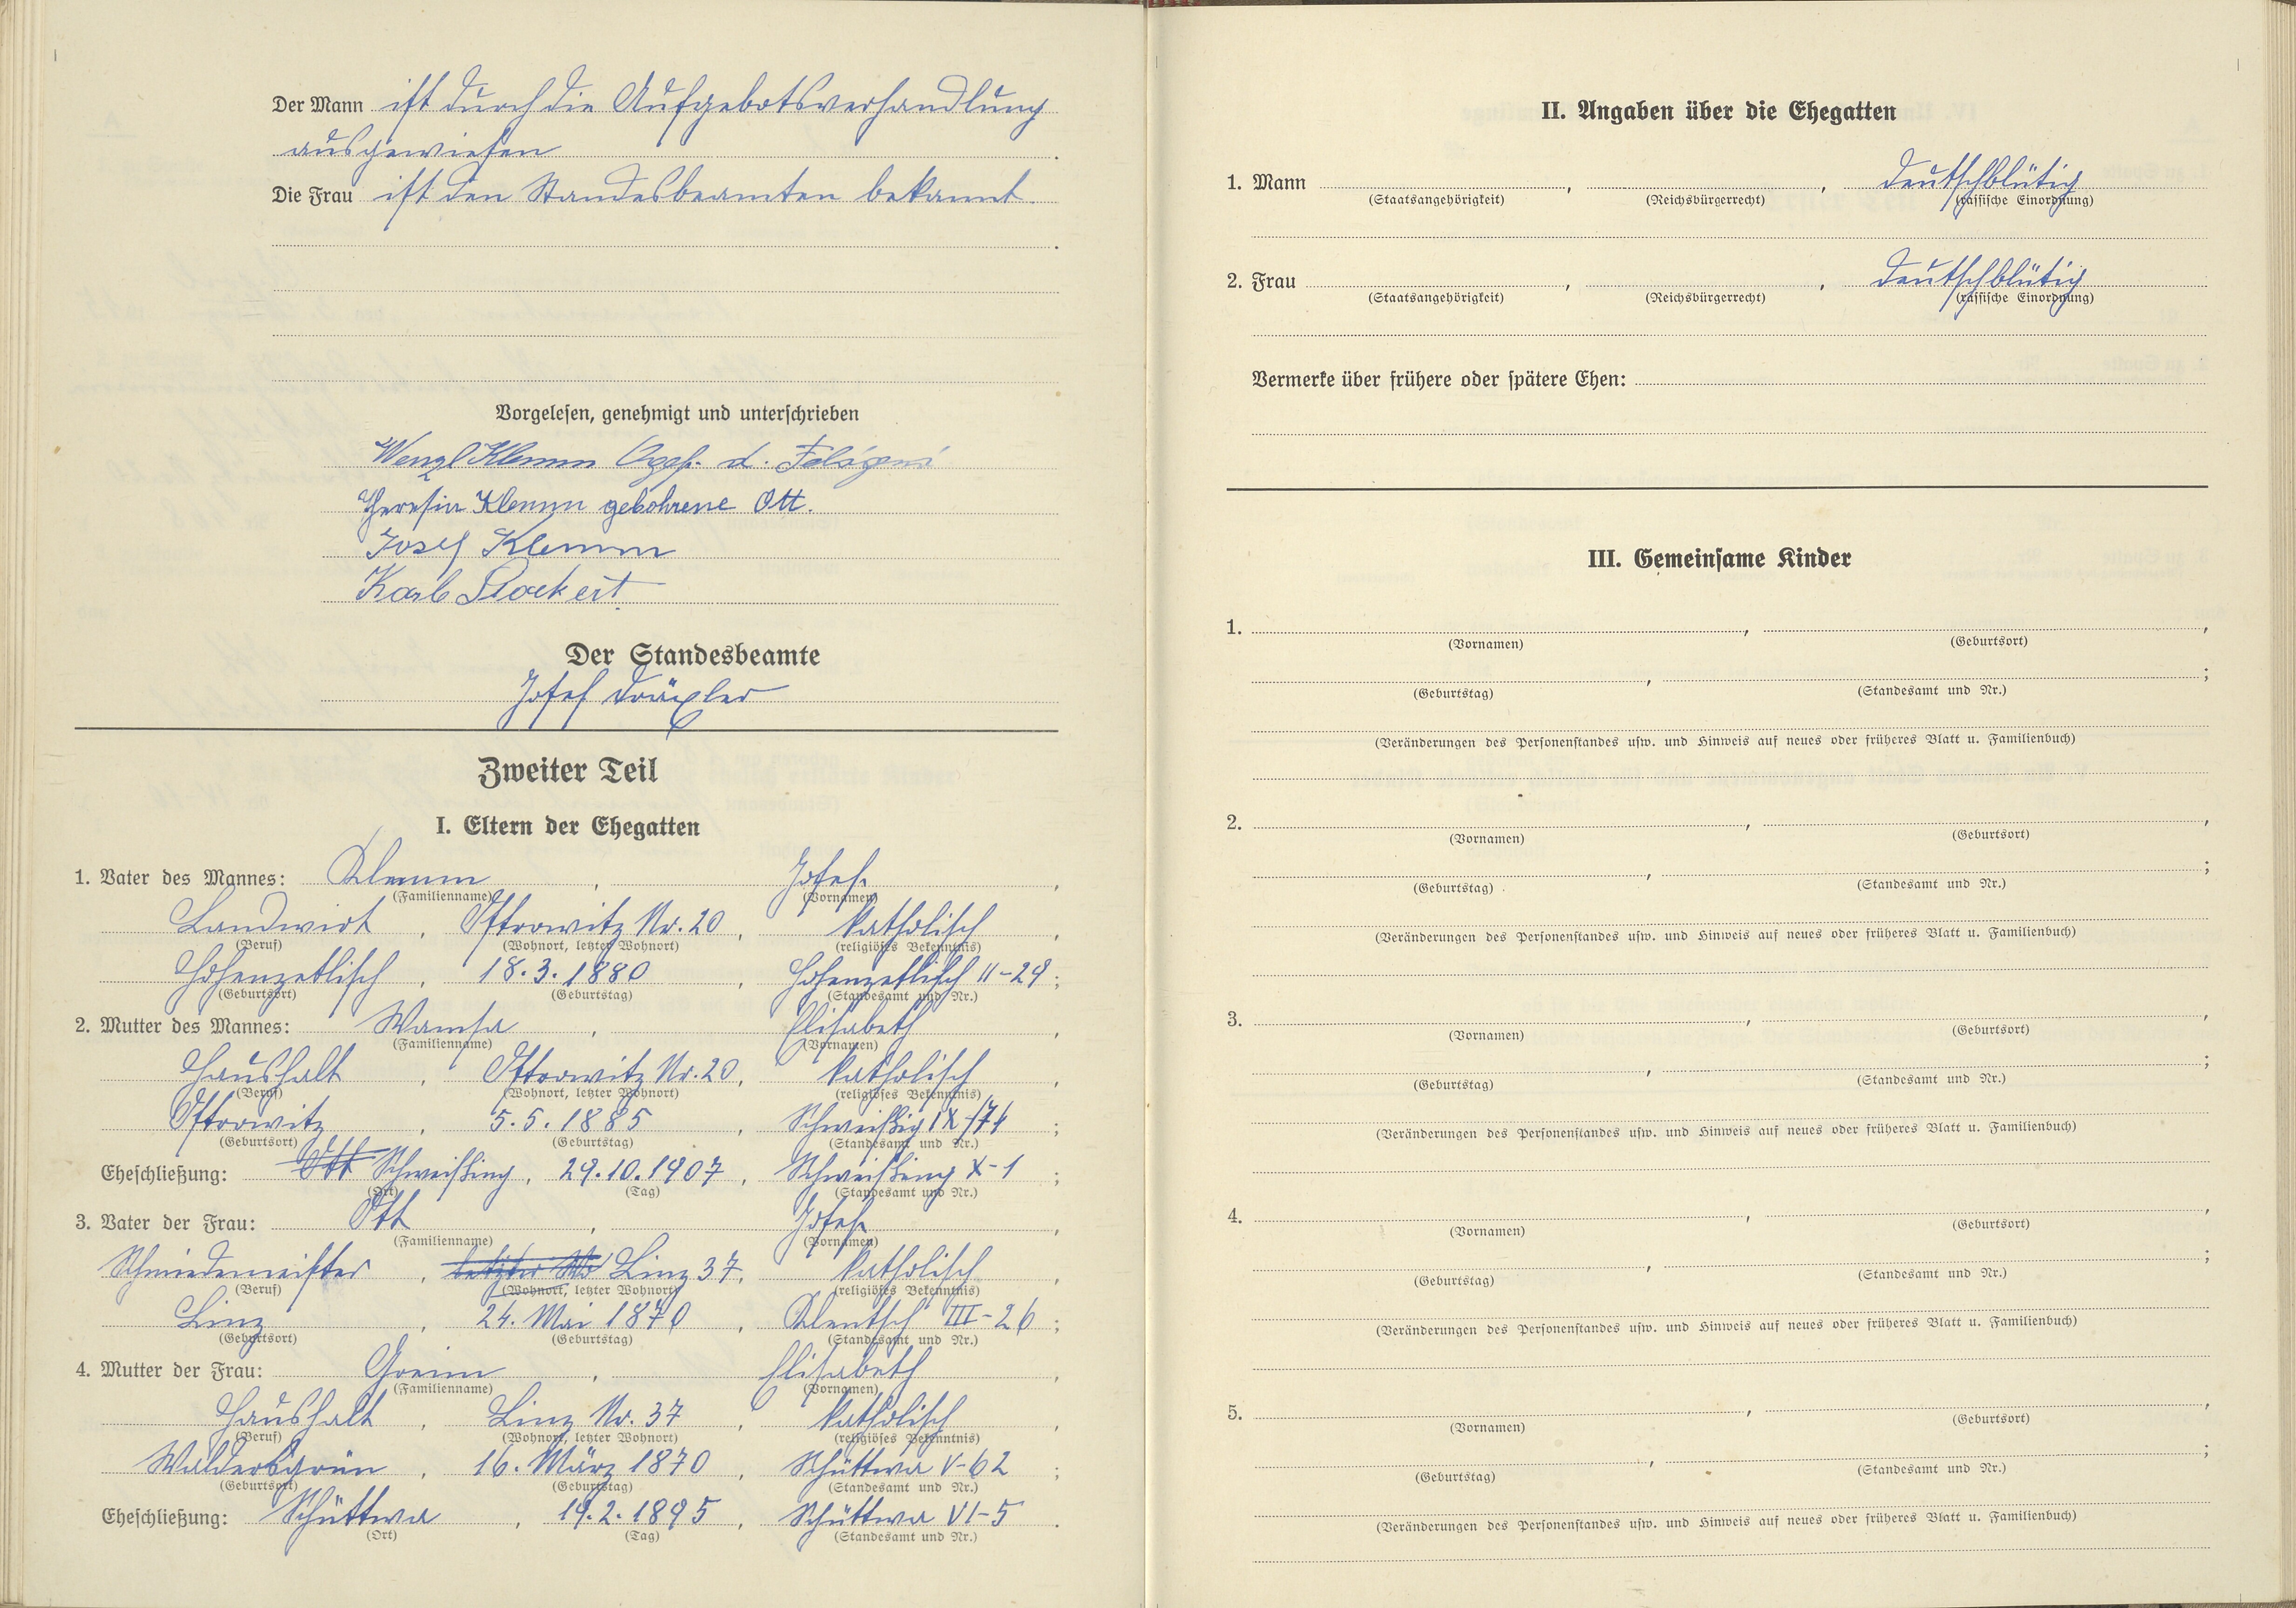 Der Mann ist durch die Aufgebotsverhandlung
ausgewiesen.
Die Frau ist den Standesbeamten bekannt
.
Vorgelesen, genehmigt und unterschrieben
Wenzl Klemm d.
Theresia Klemm gebohrene Ott.
Josef Klemm
Karl Stockert
Der Standesbeamte
Josef Dräxler
Zweiter Teil
I. Eltern der Ehegatten
1. Vater des Mannes: Klemm, Josef,
(Familienname) (Vornamen)
Landwirt, Ostrowitz Nr. 20, katholisch,
(Beruf) (Wohnort, letzter Wohnort) (religiöses Bekenntnis)
Hohenzetlisch, 18.3.1880, Hohenzetlisch II-29;
(Geburtsort) (Geburtstag) (Standesamt und Nr.)
2. Mutter des Mannes: Wamsa, Elisabeth,
(Familienname) (Vornamen)
Haushalt, Ostrowitz Nr. 20, katholisch,
(Beruf) (Wohnort, letzter Wohnort) (religiöses Bekenntnis)
Ostrowitz, 5.5.1885, Schweißig IX-174;
(Geburtsort) (Geburtstag) (Standesamt und Nr.)
Eheschließung: Ott Schweißing, 29.10.1907, Schweißing X-1;
(Ort) (Tag) (Standesamt und Nr.)
3. Vater der Frau: Ott, Josef,
(Familienname) (Vornamen)
Schmiedemeister, letzter Wo Linz 37, katholisch,
(Beruf) (Wohnort, letzter Wohnort) (religiöses Bekenntnis)
Linz, 24. Mai 1870, Klentsch III-26;
(Geburtsort) (Geburtstag) (Standesamt und Nr.)
4. Mutter der Frau: Greim, Elisabeth,
(Familienname) (Vornamen)
Haushalt, Linz Nr. 37, katholisch,
(Beruf) (Wohnort, letzter Wohnort) (religiöses Bekenntnis)
Waldersgrün, 16. März 1870, Schüttwa V-62;
(Geburtsort) (Geburtstag) (Standesamt und Nr.)
Eheschließung: Schüttwa, 19.2.1895, Schüttwa VI-5.
(Ort) (Tag) (Standesamt und Nr.)
II. Angaben über die Ehegatten
1. Mann , , deutschblütig
(Staatsangehörigkeit) (Reichsbürgerrecht) (rassische Einordnung)
2. Frau , , deutschblütig
(Staatsangehörigkeit) (Reichsbürgerrecht) (rassische Einordnung)
Vermerke über frühere oder spätere Ehen:
III. Gemeinsame Kinder
1. , ,
(Vornamen) (Geburtsort)
, ;
(Geburtstag) (Standesamt und Nr.)
(Veränderungen des Personenstandes usw. und Hinweis auf neues oder früheres Blatt u. Familienbuch)
2. , ,
(Vornamen) (Geburtsort)
, ;
(Geburtstag) (Standesamt und Nr.)
(Veränderungen des Personenstandes usw. und Hinweis auf neues oder früheres Blatt u. Familienbuch)
3. , ,
(Vornamen) (Geburtsort)
, ;
(Geburtstag) (Standesamt und Nr.)
(Veränderungen des Personenstandes usw. und Hinweis auf neues oder früheres Blatt u. Familienbuch)
4. , ,
(Vornamen) (Geburtsort)
, ;
(Geburtstag) (Standesamt und Nr.)
(Veränderungen des Personenstandes usw. und Hinweis auf neues oder früheres Blatt u. Familienbuch)
5. , ,
(Vornamen) (Geburtsort)
, ;
(Geburtstag) (Standesamt und Nr.)
(Veränderungen des Personenstandes usw. und Hinweis auf neues oder früheres Blatt u. Familienbuch)